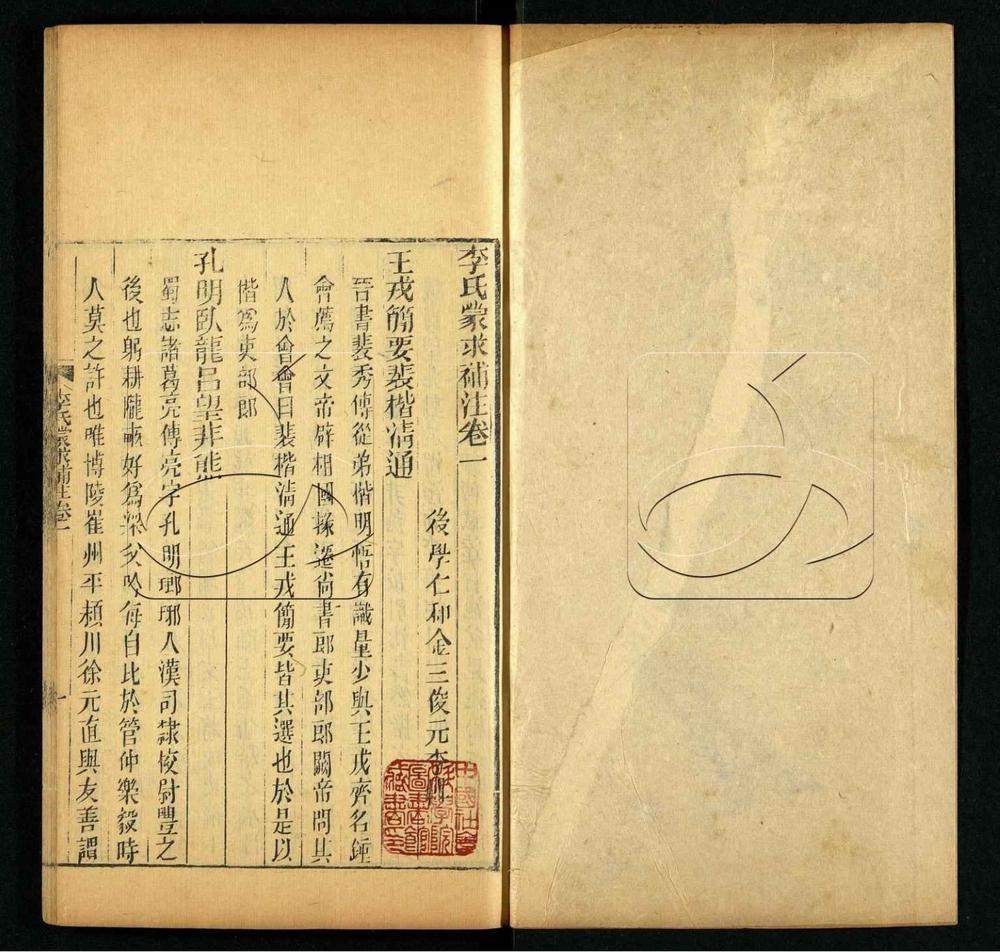 李氏蒙求補注卷一
後學仁和金三俊元李
王戎簡要裴楷淸通
晉書裴秀傳從弟楷明悟有識量少與王戎齊名鍾
會薦之文帝辟相國掾遷尚書郎吏部郎闕帝問其
人於會會曰裴楷淸通王戎簡要皆其選也於是以
楷爲吏部郎
孔明臥龍呂望非熊
蜀志諸葛亮傳亮字孔明瑯琊人漢司隸校尉豐之
後也躬耕隴畝好爲梁父吟每自比於管仲樂毅時
人莫之許也唯博陵崔州平潁川徐元直與友善謂
李氏蒙求補注卷一
一
中國社會
科學院
圖書館
藏書印